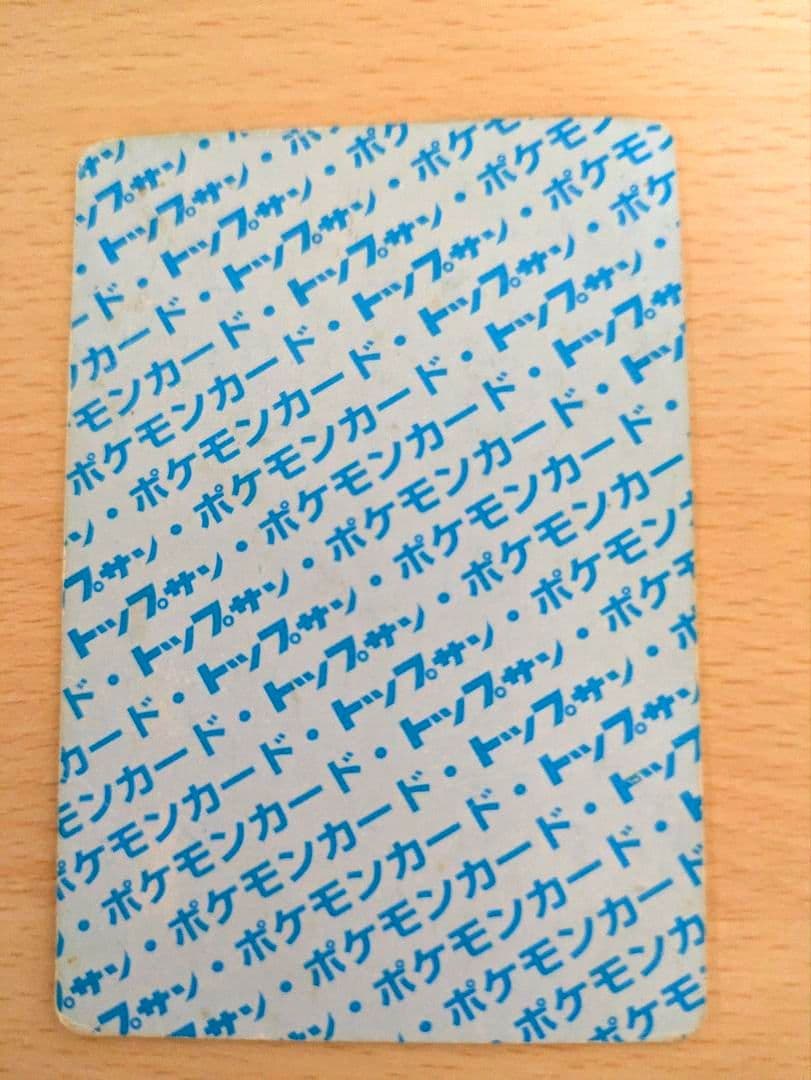 トップサン・ポ
トップサン・ポケ
・トップサン・ポケモ
ード・トップサン・ポケモン
カード・トップサン・ポケモン
モンカード・トップサン・ポケ
ポケモンカード・トップサン・
・ポケモンカード・トップサン
トップサン・ポケモンカード・トップサ
トップサン・ポケモンカード・トッ
ド・トップサン・ポケモンカード・
カード・トップサン・ポケモンカー
モンカード・トップサン・ポケモン
ポケモンカード・トップサン・ポケモ
・ポケモンカード・トップサン・ポ
サン・ポケモンカード・トップサン
プサン・ポケモンカード・トップ
サン・ポケモンカード・ト
・ポケモンカード
ポケモンカ
ポケモ